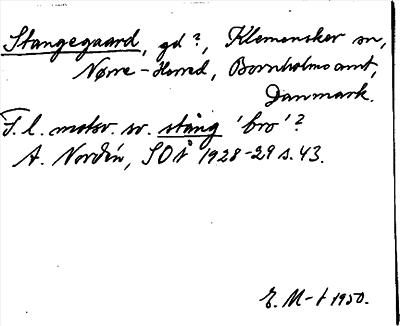 Stangegaard, gd?, Klemensker sn,
Nørre-Herred, Bornholms amt,
Danmark.
F. l. motsv. sv. stång 'bro'?
A. Nordén, SOÅ 1928-29 s. 43.
E. M-t 1950.